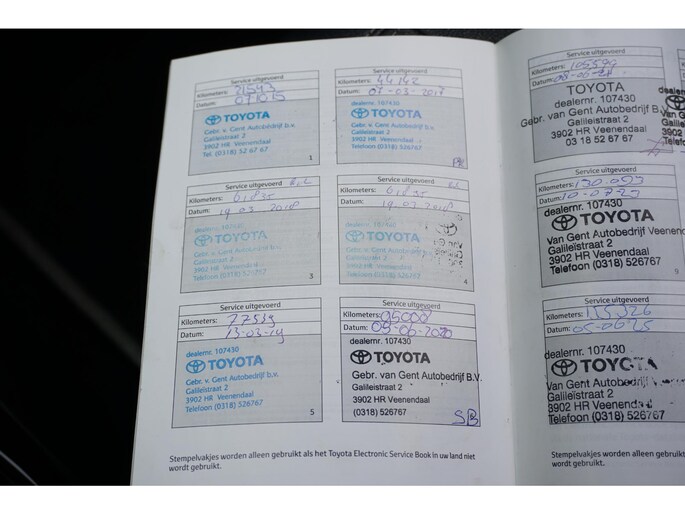 Service uitgevoerd
Kilometers: 21543
Datum: 071015
TOYOTA
Gebr. v. Gent Autobedrijf b.v.
Galileistraat 2
3902 HR Veenendaal
Tel. (0318) 52 67 67
1
Service uitgevoerd
Kilometers: 44142
Datum: 07-03-2017
dealernr. 107430
TOYOTA
Gebr. v. Gent Autobedrijf b.v.
Galileistraat 2
3902 HR Veenendaal
Telefoon (0318) 526767
Service uitgevoerd
Kilometers:
Datum: 19 03 2018
dealernr.
TOYOTA
Gebr. v. Gent Autobedrijf b.v.
Galileistraat 2
3902 HR Veenendaal
Telefoon (0318) 526767
3
Service uitgevoerd
Kilometers:
Datum: 19.03.2018
TOYOTA
Gebr. v. Gent Autobedrijf
Galileistraat 2
3902 HR Veenendaal
Telefoon (0318) 526767
4
Service uitgevoerd
Kilometers: 77539
Datum: 13-03-19
dealernr. 107430
TOYOTA
Gebr. v. Gent Autobedrijf b.v.
Galileistraat 2
3902 HR Veenendaal
Telefoon (0318) 526767
5
Service uitgevoerd
Kilometers: 95000
Datum: 05-06-2020
dealernr. 107430
TOYOTA
Gebr. van Gent Autobedrijf B.V.
Galileistraat 2
3902 HR Veenendaal
(0318) 526767
Stempelvakjes worden alleen gebruikt als het Toyota Electronic Service Book in uw land niet
wordt gebruikt.
Service uitgevoerd
Kilometers: 105590
Datum: 08-06-21
TOYOTA
dealernr. 107430
Gebr. van Gent Autobedrijf B.V.
Galileistraat 2
3902 HR Veenendaal
03 18 52 67 67
Service uitgevoerd
Kilometers: 130.093
Datum: 10-07-23
dealernr. 107430
TOYOTA
Van Gent Autobedrijf Veenendaal
Galileistraat 2
3902 HR Veenendaal
Telefoon (0318) 526767
9
Service uitgevoerd
Kilometers:
Datum: 05-06-25
dealernr. 107430
TOYOTA
Van Gent Autobedrijf
Galileistraat 2
3902 HR Veenendaal
Telefoon (0318) 526767
Stempelvakjes worden alleen
wordt gebruikt.